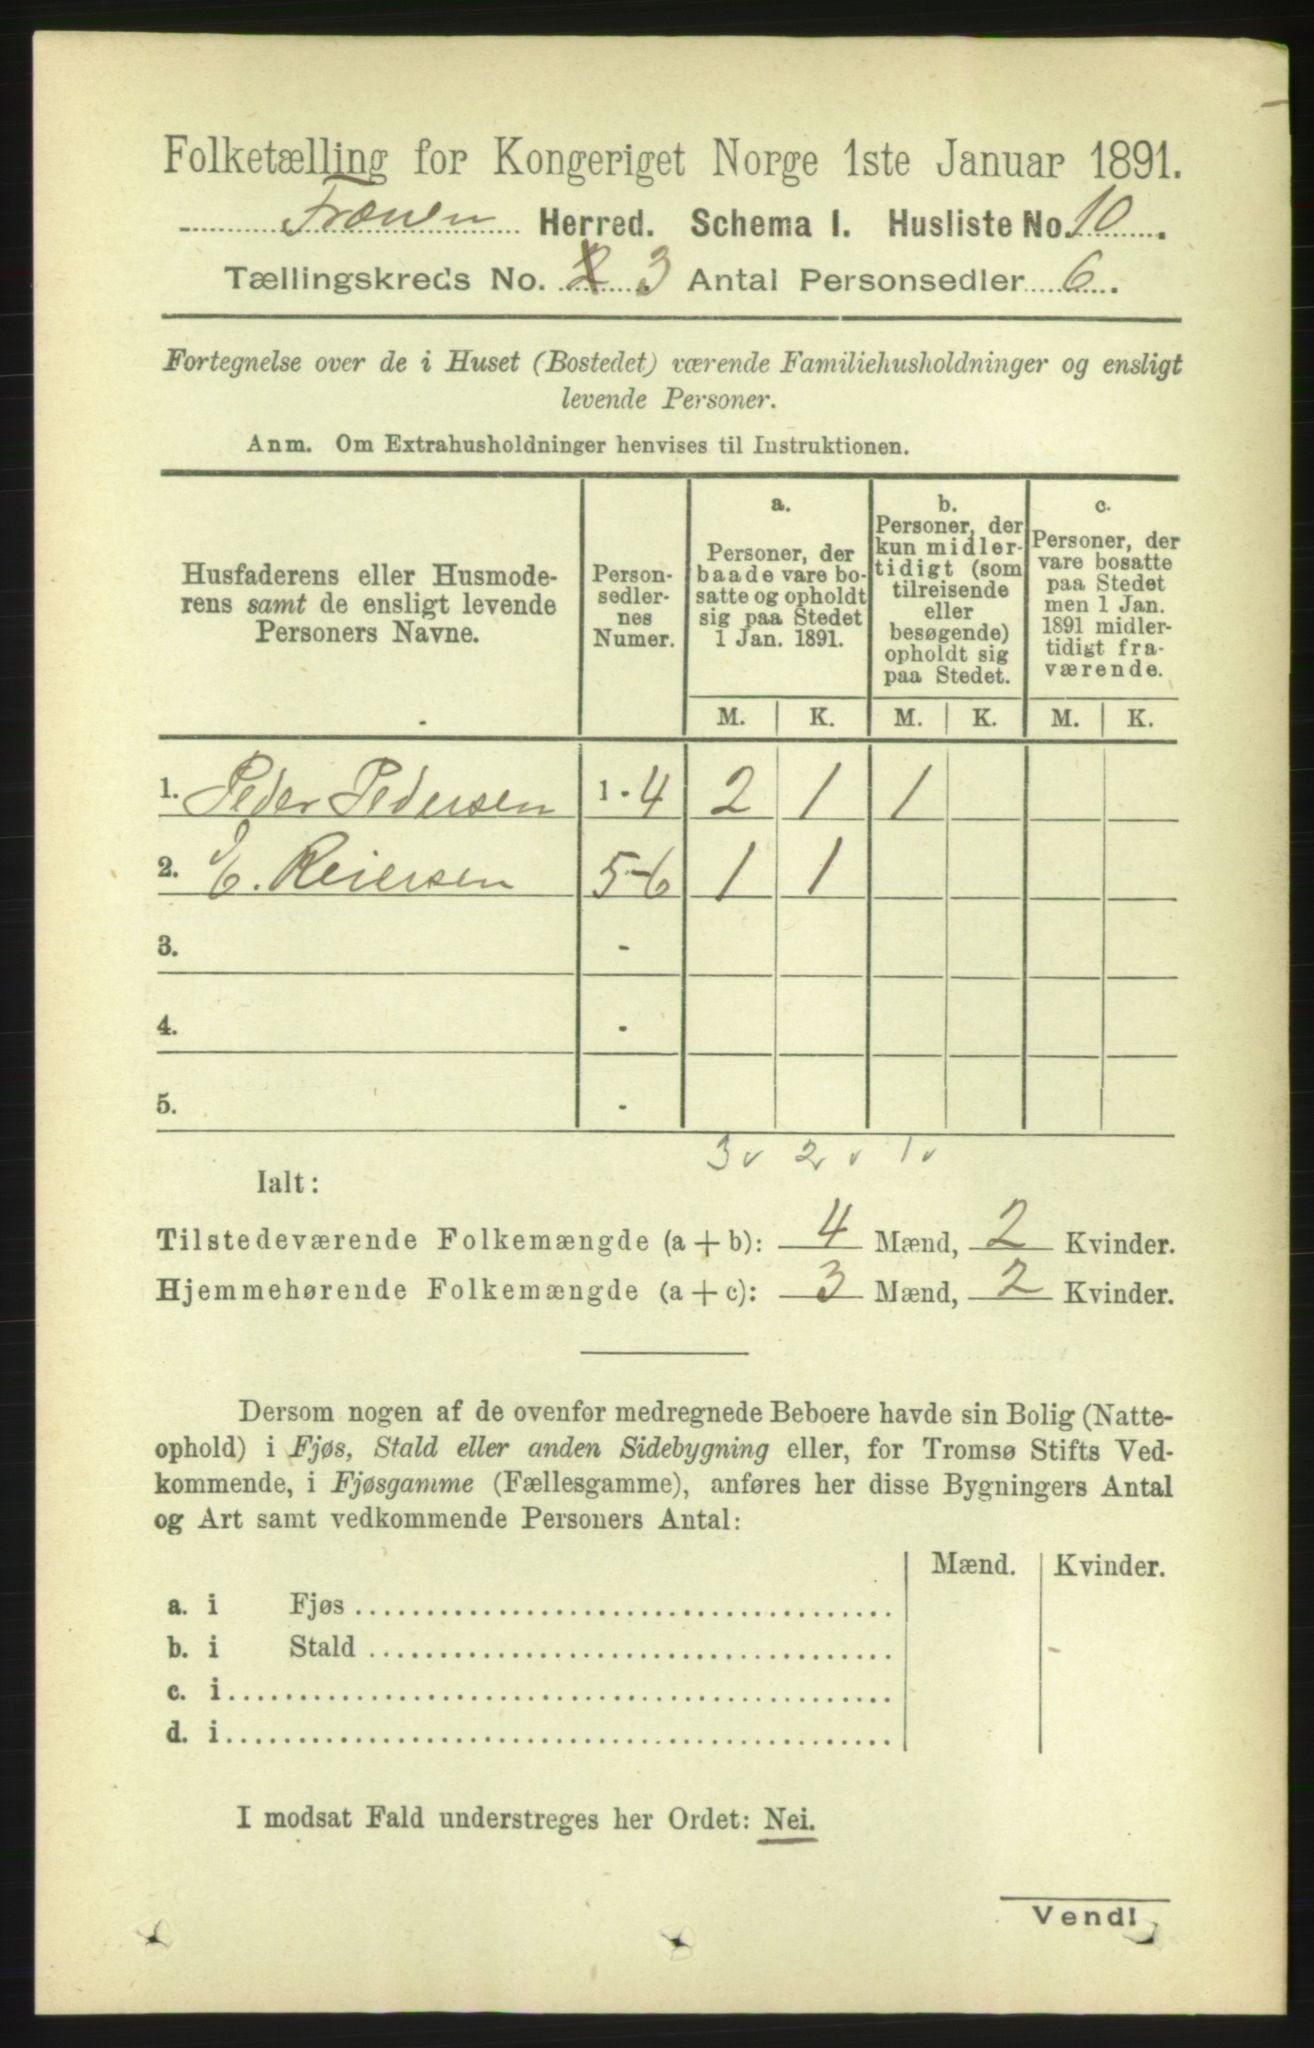 Folketælling for Kongeriget Norge 1ste Januar 1891.
Frænen Herred. Schema I. Husliste No. 10.
Tællingskreds No. 2 3 Antal Personsedler 6.
Fortegnelse over de i Huset (Bostedet) værende Familiehusholdninger og ensligt
levende Personer.
Anm. Om Extrahusholdninger henvises til Instruktionen.
Husfaderens eller Husmode-
rens samt de ensligt levende
Personers Navne.
Person-
sedler-
nes
Numer.
a.
Personer, der
baade vare bo-
satte og opholdt
sig paa Stedet
1 Jan. 1891.
b.
Personer, der
kun midler-
tidigt (som
tilreisende
eller
besøgende)
opholdt sig
paa Stedet.
c.
Personer, der
vare bosatte
paa Stedet
men 1 Jan.
1891 midler-
tidigt fra-
værende.
M. K. M. K. M. K.
1. Peder Pedersen 1 - 4 2 1 1
2. E. Reiersen 5-6 1 1
3. -
4. -
5. -
3v 2v 1v
Ialt:
Tilstedeværende Folkemængde (a + b): 4 Mænd, 2 Kvinder.
Hjemmehørende Folkemængde (a + c): 3 Mænd, 2 Kvinder.
Dersom nogen af de ovenfor medregnede Beboere havde sin Bolig (Natte-
ophold) i Fjøs, Stald eller anden Sidebygning eller, for Tromsø Stifts Ved-
kommende, i Fjøsgamme (Fællesgamme), anføres her disse Bygningers Antal
og Art samt vedkommende Personers Antal:
Mænd. Kvinder.
a. i Fjøs
b. i Stald
c. i
d. i
I modsat Fald understreges her Ordet: Nei.
Vend!